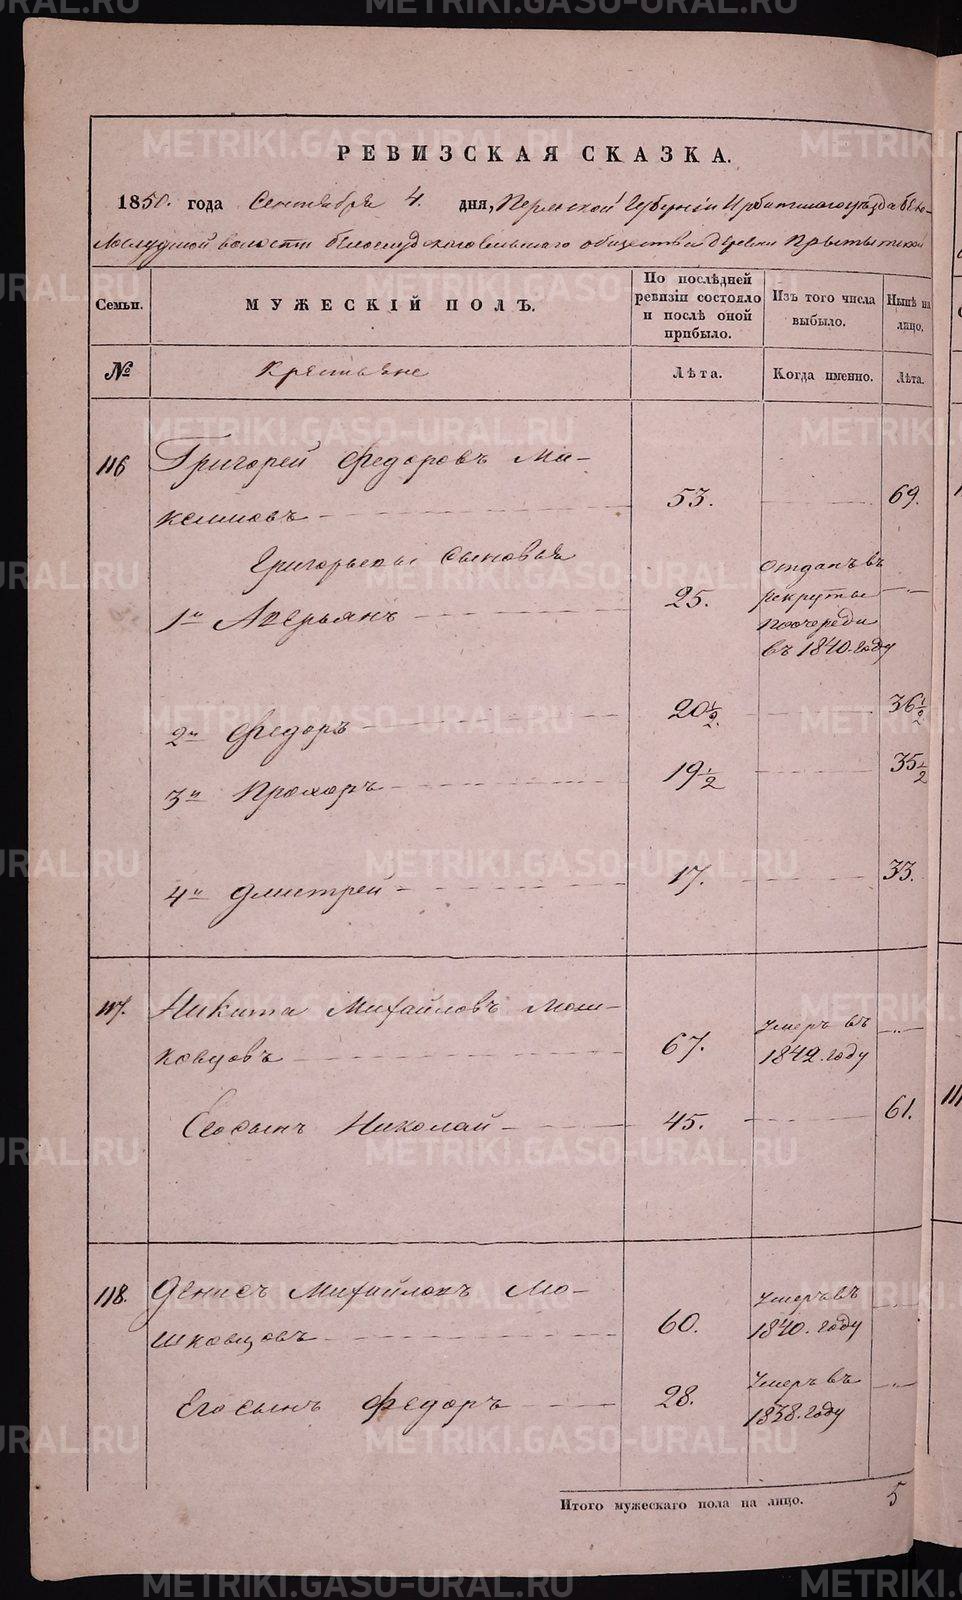 РЕВИЗСКАЯ СКАЗКА.
1850. года Сентября 4. дня, Пермской Губернии Ирбитскаго уѣзда Бѣло-
слудской волости Белослудскаго сельскаго общества деревни
Семьи.
МУЖЕСКІЙ ПОЛЪ.
По послѣдней ревизіи состояло и послѣ оной прибыло.
Изъ того числа выбыло.
Нынѣ на лицо.
№
Крестьяне
Лѣта.
Когда именно.
Лѣта.
116 Григорей Федоровъ Ми-
кшиновъ 53. 69.
Григорьевы сыновья
1й Аверьянъ 25. Отданъ въ рекруты поочереди въ 1840. году
2й Федоръ 20½. 36½
3й Прохоръ 19½ 35½
4й Дмитрей 17. 33.
117. Никита Михайловъ Мош-
ковцовъ 67. Умеръ въ 1842. году
Егосынъ Николай 45. 61.
118. Денисъ Михайловъ Мо-
шковцовъ 60. Умеръ въ 1840. году
Егосынъ Федоръ 28. Умеръ въ 1838. году
Итого мужескаго пола на лицо. 5
METRIKI.GASO-URAL.RU